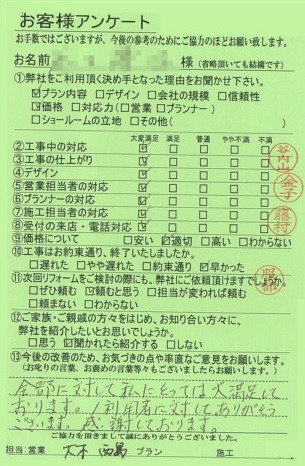 お客様アンケート
お手数ではございますが、今後の参考のためにご協力のほどお願い致します。
お名前 様 (省略頂いても結構です)
①弊社をご利用頂く決め手となった理由をお聞かせ下さい。
☑プラン内容 □デザイン □会社の規模 □信頼性
☑価格 □対応力(□営業 □プランナー)
□ショールームの立地 □その他( )
大変満足 満足 普通 やや不満 不満
②工事中の対応 ☑ □ □ □ □
③工事の仕上がり ☑ □ □ □ □
④デザイン ☑ □ □ □ □
⑤営業担当者の対応 ☑ □ □ □ □
⑥プランナーの対応 ☑ □ □ □ □
⑦施工担当者の対応 ☑ □ □ □ □
⑧受付の来店・電話対応 ☑ □ □ □ □
⑨価格について □安い ☑適切 □高い □わからない
⑩工事はお約束通り、終了いたしましたか。
□遅れた □やや遅れた □約束通り ☑早かった
⑪次回リフォームをご検討の際にも、弊社にご依頼頂けますでしょうか。
□ぜひ頼む ☑頼むと思う □担当が変われば頼む
□頼まない □わからない
⑫ご家族・ご親戚の方々をはじめ、お知り合い方々に、
弊社を紹介したいとお思いでしょうか。
□思う ☑聞かれたら紹介する □しない
⑬今後の改善のため、お気づきの点や率直なご意見をお願いします。
(お叱りの言葉、お褒めの言葉等々もございましたらお願いします。)
全部に対して私にとっては大満足して
おります。利用者に対してありがとう
ございます。感謝しております。
ご協力を頂きまして誠にありがとうございました。
担当:営業 大木 西島 プラン 施工
谷内山
金子
藤村
服部